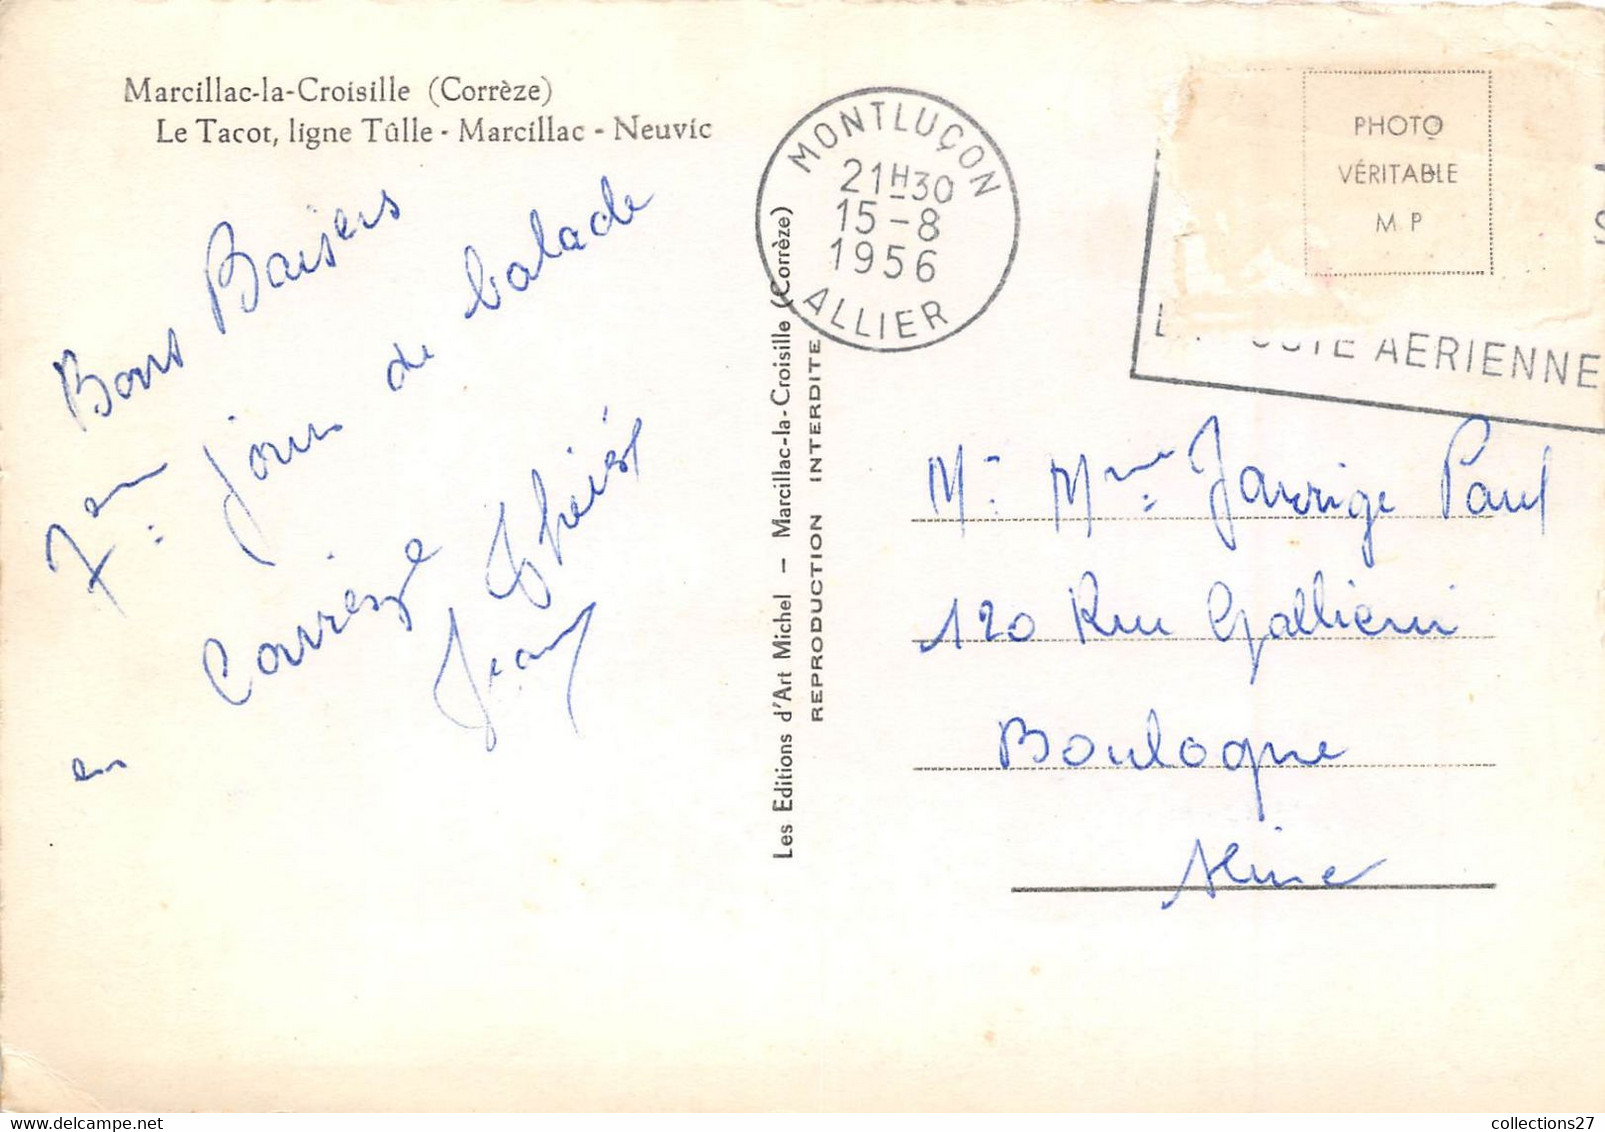 Marcillac-la-Croisille (Corrèze)
Le Tacot, ligne Tûlle - Marcillac - Neuvic
Bons Baisers
7em jours de balade
en Corrèze
Jean
Les Editions d'Art Michel — Marcillac-la-Croisille (Corrèze)
REPRODUCTION INTERDITE
MONTLUÇON
21H30
15-8
1956
ALLIER
PHOTO
VÉRITABLE
M P
AERIENNE
Mr Mme Jarrige Paul
120 Rue Gallieni
Boulogne
Seine
collections27